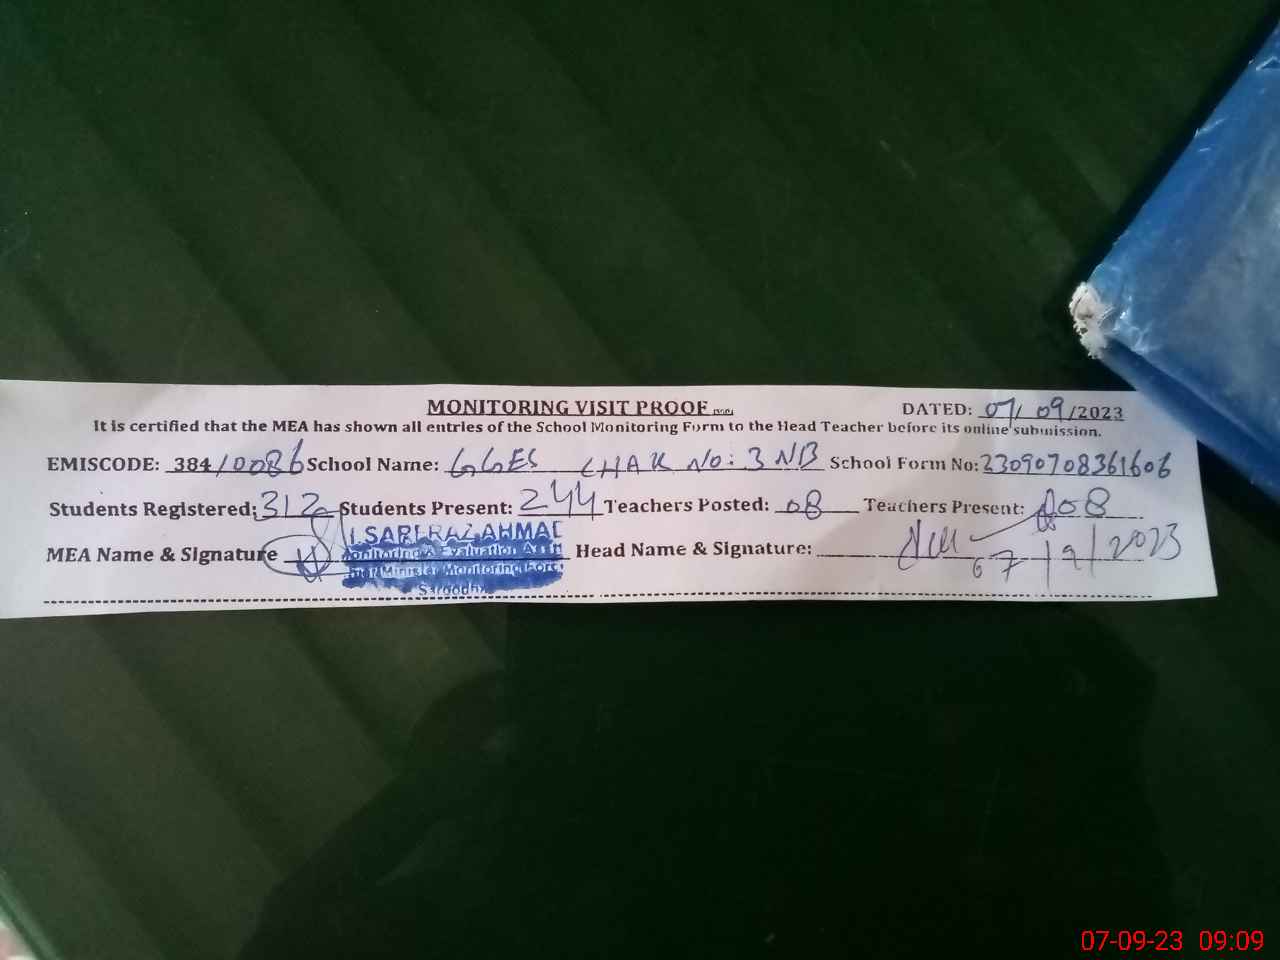 MONITORING VISIT PROOF
DATED: 07/09/2023
It is certified that the MEA has shown all entries of the School Monitoring Form to the Head Teacher before its online submission.
EMISCODE: 384/0086 School Name: GGES CHAK No: 3 NB School Form No: 23090708361606
Students Registered: 312 Students Present: 244 Teachers Posted: 08 Teachers Present: 08
MEA Name & Signature Head Name & Signature:
AHMAD
Monitoring & Evaluation
Minister Monitoring
Sargodha
7/9/2023
07-09-23 09:09